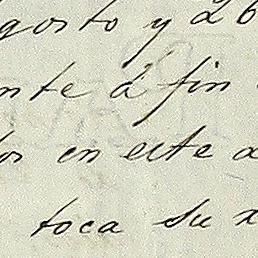 gosto y 26
nte á fin
os en este a
toca su x